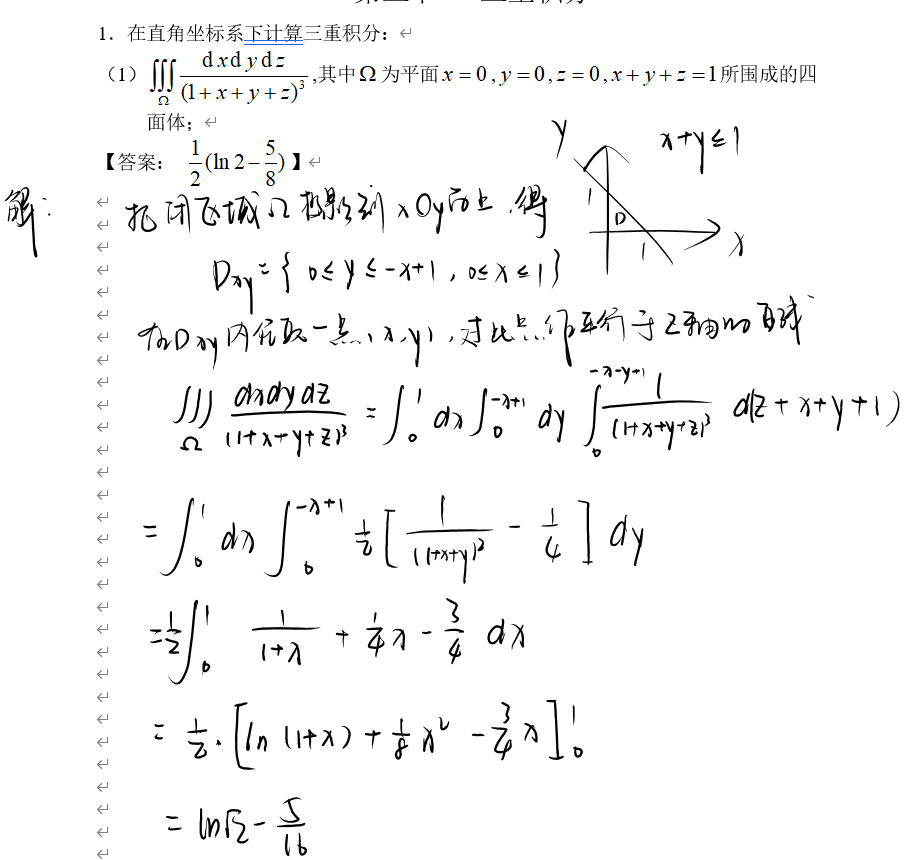 1. 在直角坐标系下计算三重积分:
(1) ∭_Ω dxdydz/(1+x+y+z)³ ,其中Ω为平面x=0,y=0,z=0,x+y+z=1所围成的四
面体;
【答案: 1/2(ln2−5/8)】
y x+y≤1
1 D 1 x
解: 把闭区域Ω投影到xOy面上,得
Dxy={ 0≤y≤-x+1, 0≤x≤1}
在Dxy内任取一点(x,y),过此点作平行于z轴的直线
∭_Ω dxdydz/(1+x+y+z)³ = ∫_0^1 dx ∫_0^{-x+1} dy ∫_0^{-x-y+1} 1/(1+x+y+z)³ d(z+x+y+1)
= ∫_0^1 dx ∫_0^{-x+1} 1/2 [ 1/(1+x+y)² - 1/4 ] dy
= 1/2 ∫_0^1 1/(1+x) + 1/4 x - 3/4 dx
= 1/2 · [ln(1+x) + 1/8 x² - 3/4 x]_0^1
= ln√2 - 5/16